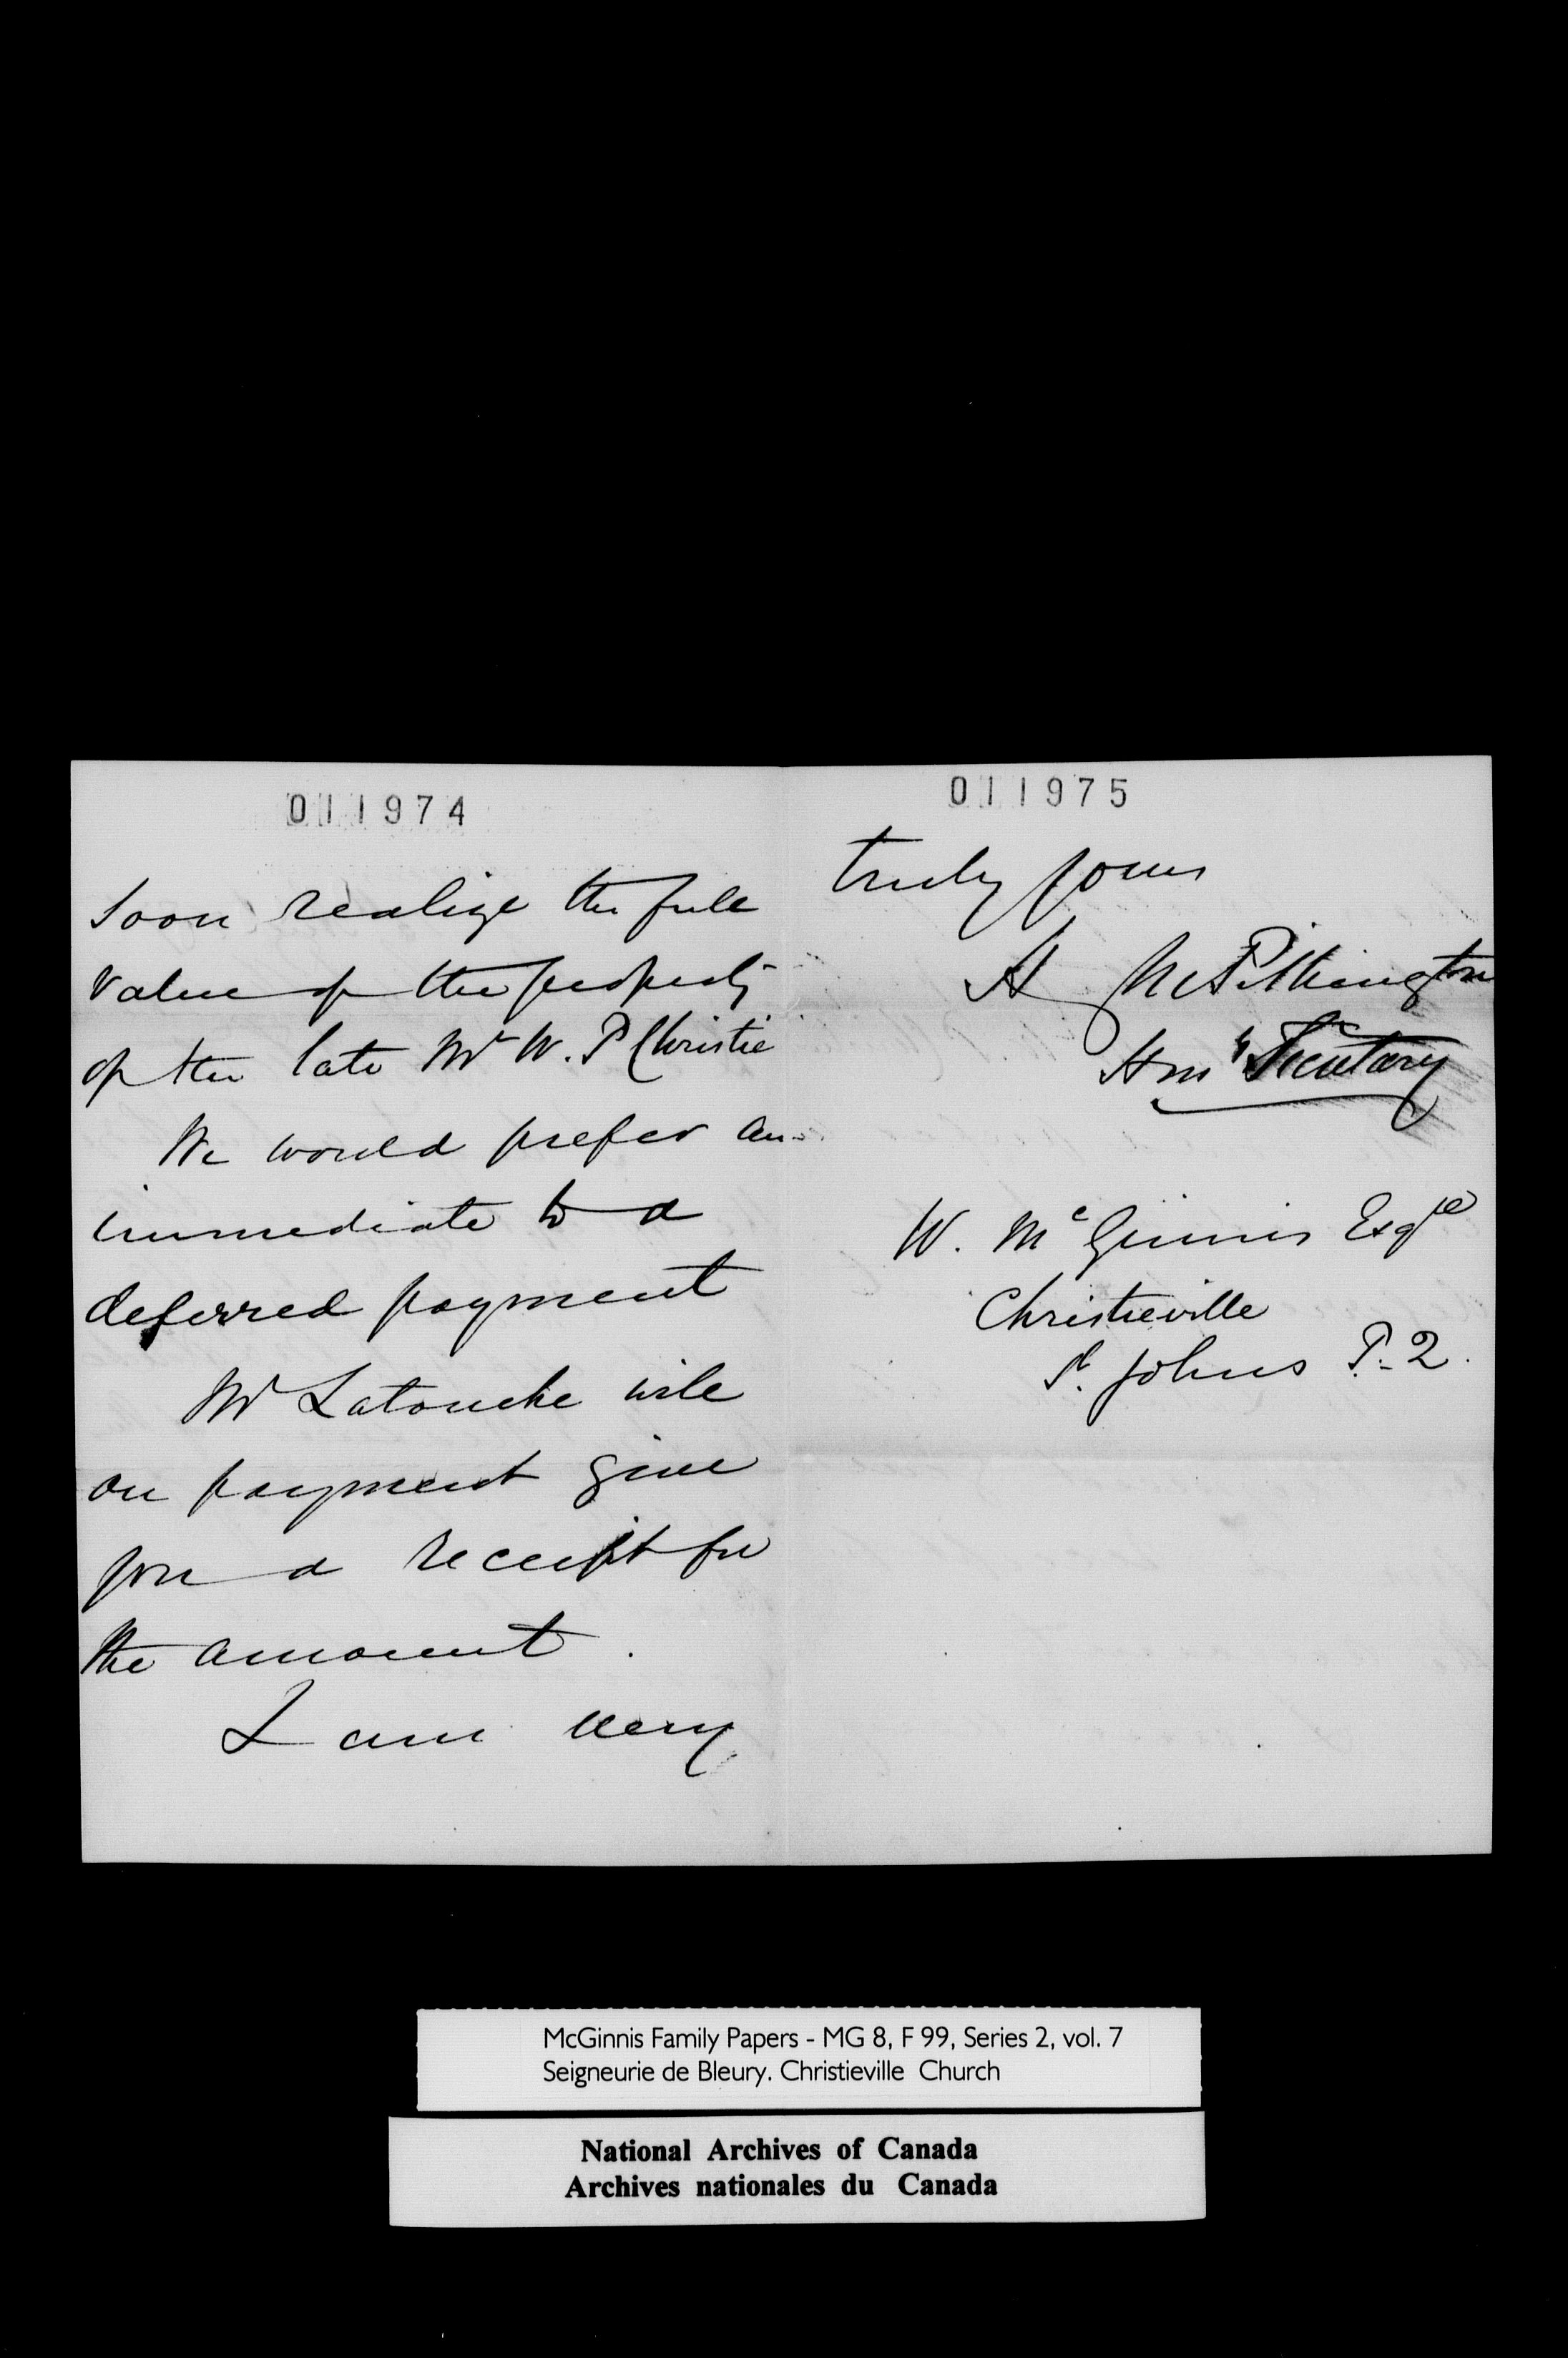 011974
soon realize the full
value of the property
of the late Mr W. P Christie
We would prefer an
immediate to a
deferred payment
Mr Latouche will
on payment give
you a receipt for
the amount.
I am very
011975
truly yours
Pilkington
Secretary
W. McGinnis Esqre
Christieville
St. Johns P. Q.
McGinnis Family Papers - MG 8, F 99, Series 2, vol. 7
Seigneurie de Bleury. Christieville Church
National Archives of Canada
Archives nationales du Canada